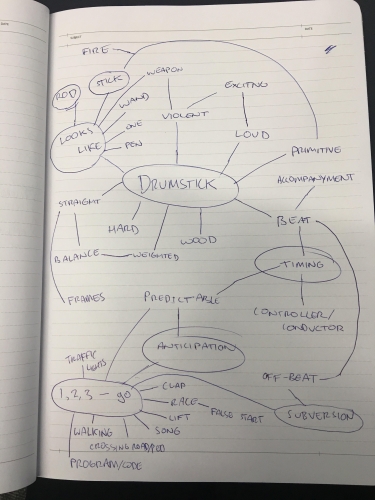 SUBJECT
DATE
DATE
FIRE
STICK
WEAPON
ROD
EXCITNG
WAND
VIOLENT
LOOKS
LIKE
ONE
PEN
LOUD
PRIMITIVE
DRUMSTICK
ACCOMPANYMENT
STRAIGHT
HARD
BEAT
WOOD
BALANCE
WEIGHTED
TIMING
FRAMES
PREDICTABLE
CONTROLLER/
CONDUCTOR
ANTICIPATION
TRAFFIC
LIGHTS
OFF-BEAT
1, 2, 3 - go
CLAP
RACE
FALSE START
LIFT
SUBVERSION
WALKING
SONG
CROSSING ROAD/PED
PROGRAM/CODE